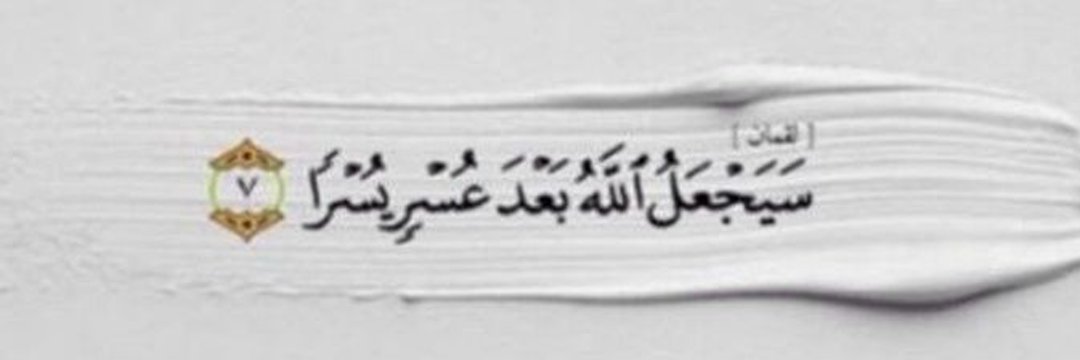 [ لقمان ]
سَيَجْعَلُ ٱللَّهُ بَعْدَ عُسْرٍ يُسْرًا ٧